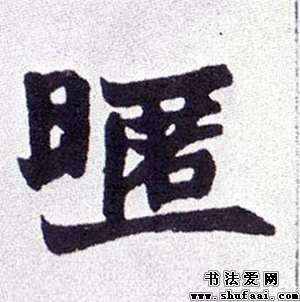 暱
书法爱网
www.shufaai.com